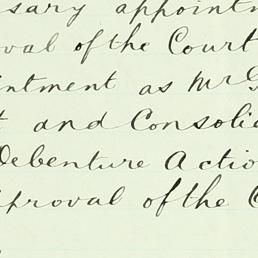 ssary appointm
oval of the Court
intment as Mr G
t and Consolid
Debenture Actio
pproval of the C